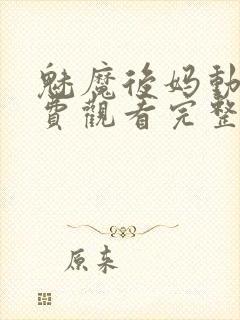 魅魔後妈動
費觀看完整
原来